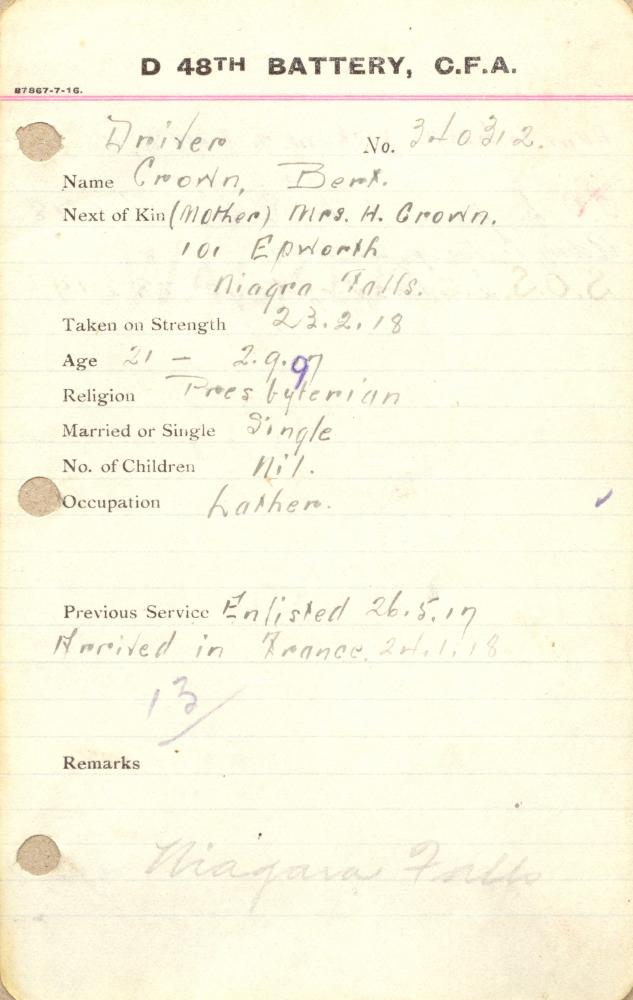 D 48TH BATTERY, C.F.A.
87867-7-16.
Driver No. 340312.
Name Crown, Bert.
Next of Kin (Mother) Mrs. H. Crown.
101 Epworth
Niagra Falls.
Taken on Strength 23.2.18
Age 21 – 2.9.17
9
Religion Presbyterian
Married or Single Single
No. of Children Nil.
Occupation Lather.
Previous Service Enlisted 26.5.17
Arrived in France. 24.1.18
13/
Remarks
Niagara Falls